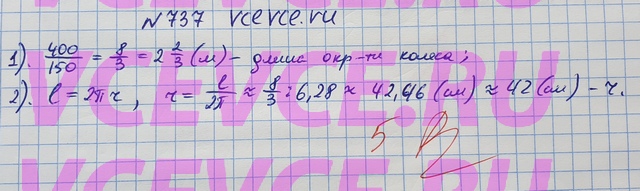 №737 vcevce.ru
1). 400/150 = 8/3 = 2 2/3 (м) - длина окр-ти колеса;
2). l = 2πr, r = l/2π ≈ 8/3 : 6,28 ≈ 42,46 (см) ≈ 42 (см) - r.
5
VCEVCE.RU
VCEVCE.RU